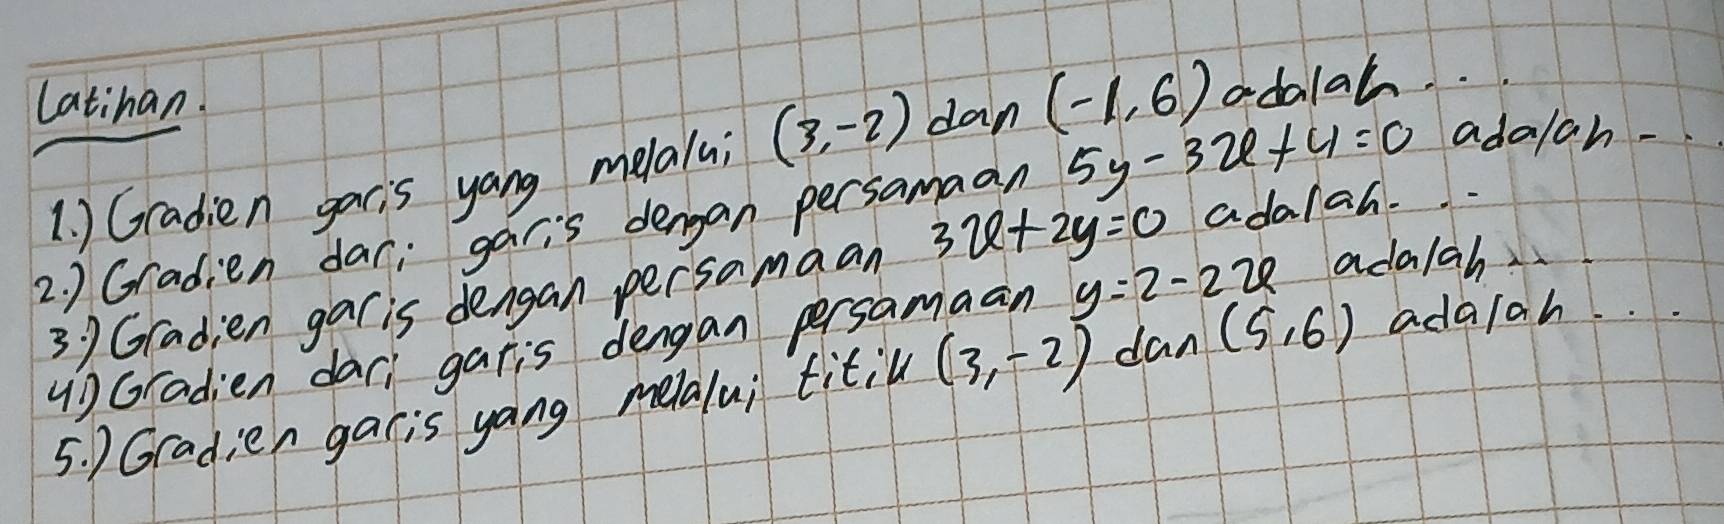 Latihan.
1.) Gradien garis yang melalui (3,-2) dan (-1,6) adalah...
2.) Gradien dari garis dengan persamaan 5y-3x+4=0 adalah...
3.) Gradien garis dengan persamaan 3x+2y=0 adalah...
4.) Gradien dari garis dengan persamaan y=2-2x adalah...
5.) Gradien garis yang melalui titik (3,-2) dan (5,6) adalah...